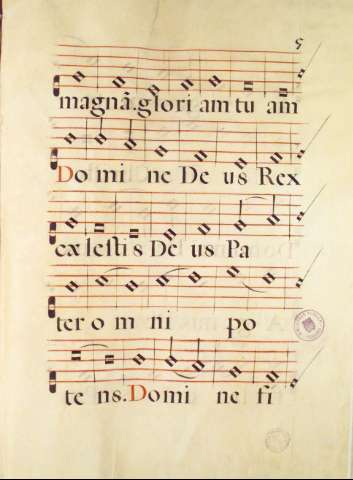 5
magnã. glori am tu am
Domi ne De us Rex
cælesti s De us Pa
ter o m ni po
te ns. Domi ne fi